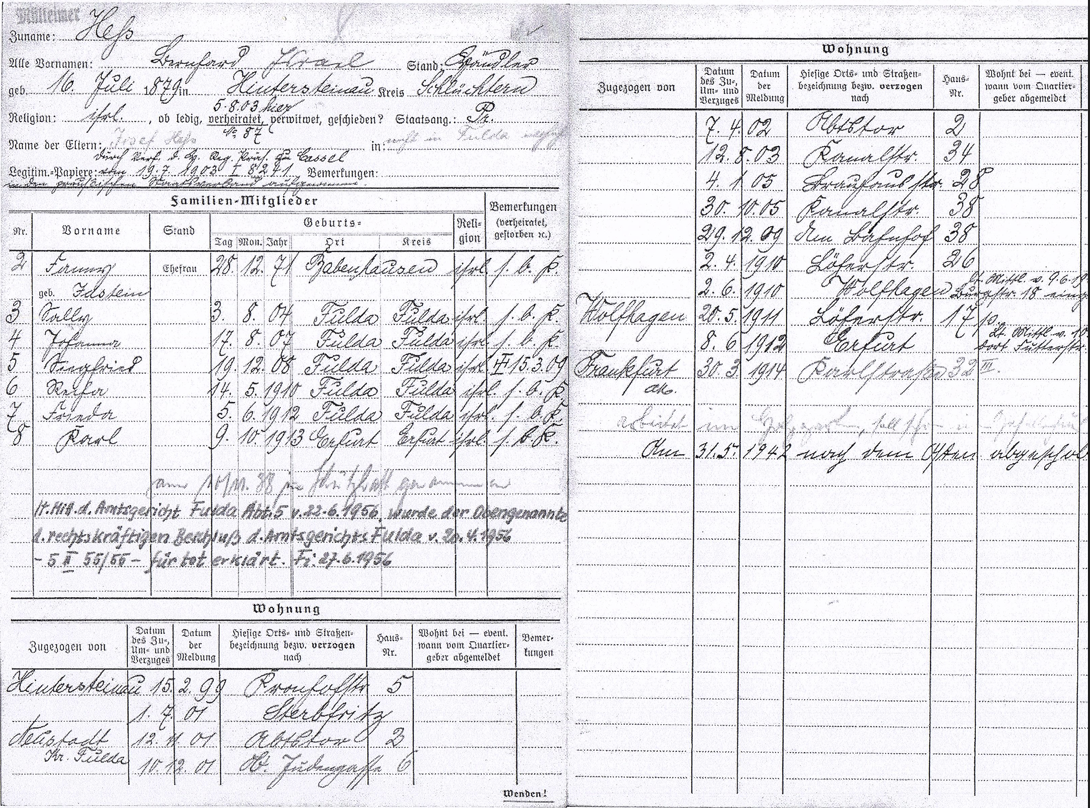 Mülleimer
Zuname: Heß
Alle Vornamen: Bernhard Israel Stand: Händler
geb. 16. Juli 1879 in Hintersteinau Kreis Schlüchtern
5.8.03 hier
Religion: isrl. , ob ledig, verheiratet, verwitwet, geschieden? Staatsang.: Pr.
No 87
Name der Eltern: Josef Heß in: in Fulda
durch Verf. d. Hr. Reg. Präs. zu Cassel
Legitim.-Papiere: vom 19.7.1903 I 8241 Bemerkungen:
in den preußischen Staatsverband aufgenommen.
Familien-Mitglieder
Nr. Vorname Stand Geburts- Tag Mon. Jahr Ort Kreis Religion Bemerkungen (verheiratet, gestorben ꝛc.)
2 Fanny Ehefrau 28. 12. 71 Babenhausen isrl. s. b. K.
geb. Idstein
3 Sally 3. 8. 04 Fulda Fulda isrl. s. b. K.
4 Johanna 17. 8. 07 Fulda Fulda isrl. s. b. K.
5 Siegfried 19. 12. 08 Fulda Fulda isrl. 15.3.09
6 14. 5. 1910 Fulda Fulda isrl. s. b. K.
7 Frieda 5. 6. 1912 Fulda Fulda isrl. s. b. K.
8 Karl 9. 10. 1913 Erfurt Erfurt isrl. s. b. K.
am 10/11. 38 in Schutzhaft genommen
lt. Mitt. d. Amtsgericht Fulda Abt. 5 v. 22.6.1956, wurde der Obengenannte
d. rechtskräftigen Beschluß d. Amtsgerichts Fulda v. 20.4.1956
- 5 II 55/55 - für tot erklärt. Fi: 27.6.1956
Wohnung
Zugezogen von Datum des Zu-, Um- und Verzuges Datum der Meldung Hiesige Orts- und Straßenbezeichnung bezw. verzogen nach Haus-Nr. Wohnt bei — event. wann vom Quartiergeber abgemeldet Bemerkungen
Hintersteinau 15. 2. 99 Kronhofstr 5
1. 7. 01 Sterbfritz
Neustadt 12. 11. 01 Abtstor 2
Kr. Fulda
10. 12. 01 Ob. Judengasse 6
Wenden!
Wohnung
Zugezogen von Datum des Zu-, Um- und Verzuges Datum der Meldung Hiesige Orts- und Straßenbezeichnung bezw. verzogen nach Haus-Nr. Wohnt bei — event. wann vom Quartiergeber abgemeldet
7. 4. 02 Abtstor 2
12. 8. 03 Kanalstr. 34
4. 1. 05 Brauhausstr. 28
30. 10. 05 Kanalstr. 38
29. 12. 09 Am Bahnhof 38
2. 4. 1910 Löherstr. 26
2. 6. 1910 Wolfhagen lt. Mittl. v. 9.6.
Burgstr. 18
Wolfhagen 20. 5. 1911 Löherstr. 17
8. 6 1912 Erfurt lt. Mittl. v.
dort Futterstr.
Frankfurt 30. 3. 1914 Karlstraße 32 III.
arbeitet im
Am 31. 5. 1942 nach dem Osten